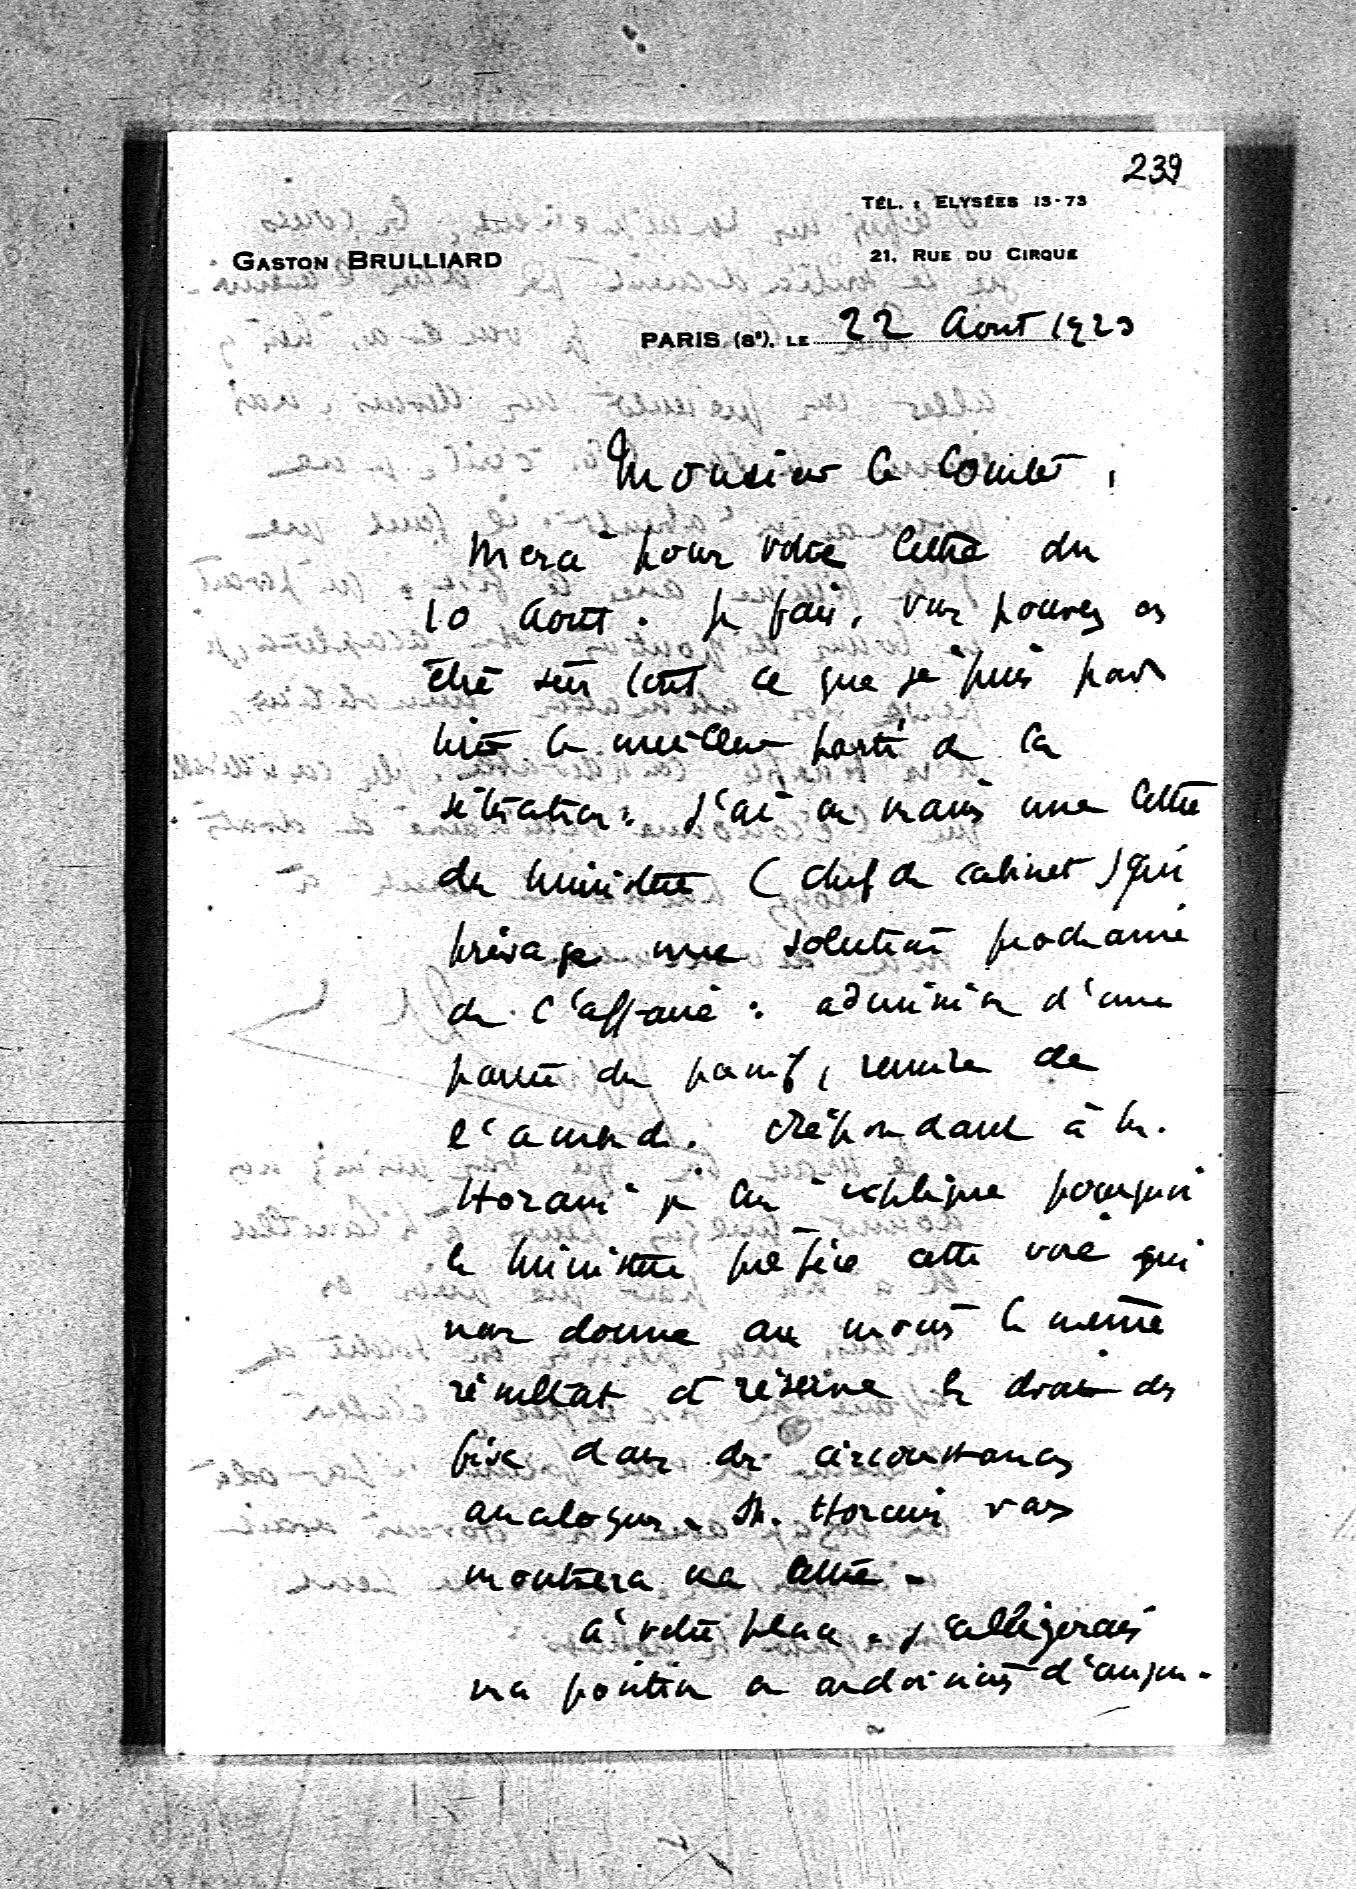 239
TÉL. : ELYSÉES 13-73
GASTON BRULLIARD
21, RUE DU CIRQUE
PARIS (8e), LE 22 Aout 1923
Monsieur le Comte,
Merci pour votre lettre du
10 Aout. Je fais, vous pouvez en
être sûr tout ce que je puis pour
tirer le meilleur parti de la
situation. J'ai en mains une lettre
du ministère (chef de cabinet) qui
présage une solution prochaine
de l'affaire : admission d'une
partie du passif, remise de
l'amende. Répondant à M.
Horain je lui explique pourquoi
le ministère préfère cette voie qui
nous donne au moins le même
résultat et réserve les droits du
fisc dans des circonstances
analogues. M. Horain vous
montrera ma lettre.
A votre place, j'
ma position en d'aujou-